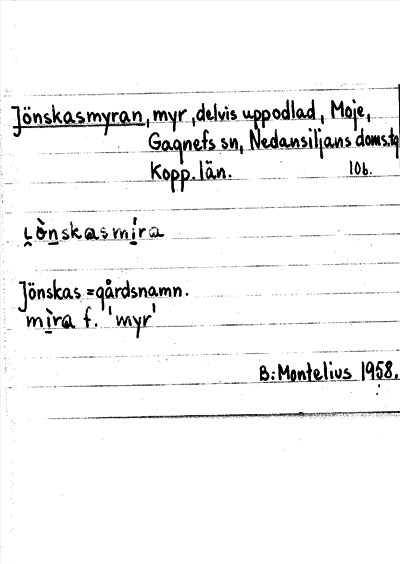 Jönskasmyran, myr, delvis uppodlad, Moje,
Gagnefs sn, Nedansiljans doms.tg
Kopp. län. 10b.
Jönskas = gårdsnamn.
mìra f. 'myr'
B. Montelius 1958.